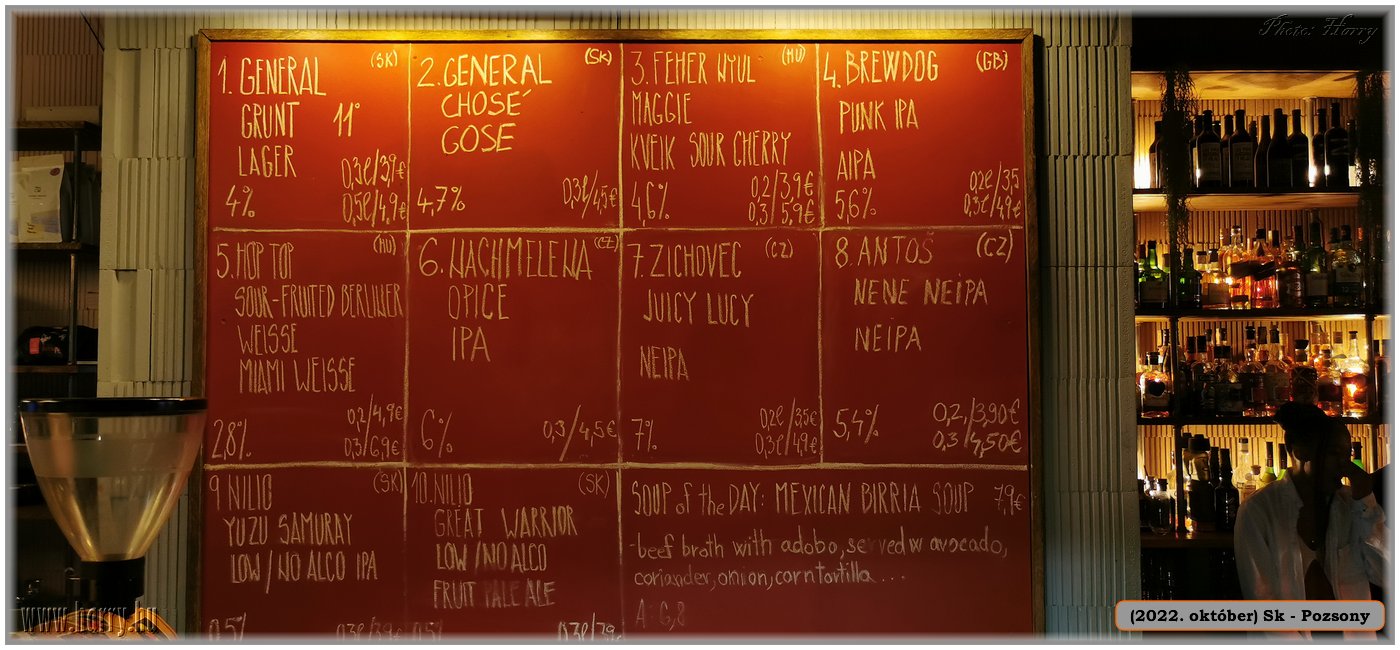 Photo: Horry
1. GENERAL (SK)
GRUNT 11°
LAGER
0,3l/3,9€
4% 0,5l/4,9€
2. GENERAL (SK)
CHOSÉ
GOSE
4,7% 0,3l/4,5€
3. FEHER NYUL (HU)
MAGGIE
KVEIK SOUR CHERRY
0,2/3,9€
4,6% 0,3/5,9€
4. BREWDOG (GB)
PUNK IPA
AIPA
0,2l/3,5
5,6% 0,3l/4,9€
5. HOP TOP (HU)
SOUR-FRUITED BERLINER
WEISSE
MIAMI WEISSE
0,2/4,9€
2,8% 0,3/6,9€
6. NACHMELENA (CZ)
OPICE
IPA
6% 0,3/4,5€
7. ZICHOVEC (CZ)
JUICY LUCY
NEIPA
0,2l/3,5€
7% 0,3l/4,9€
8. ANTOŠ (CZ)
NENE NEIPA
NEIPA
0,2/3,90€
5,4% 0,3/4,50€
9 NILIO (SK)
YUZU SAMURAY
LOW/NO ALCO IPA
0,5% 0,3l/3,9€
10. NILIO (SK)
GREAT WARRIOR
LOW/NO ALCO
FRUIT PALE ALE
0,5% 0,3l/3,9€
SOUP of the DAY: MEXICAN BIRRIA SOUP 7,9€
-beef broth with adobo, served w avocado,
coriander, onion, corn tortilla...
A: 6,8
www.horry.hu
(2022. október) Sk - Pozsony